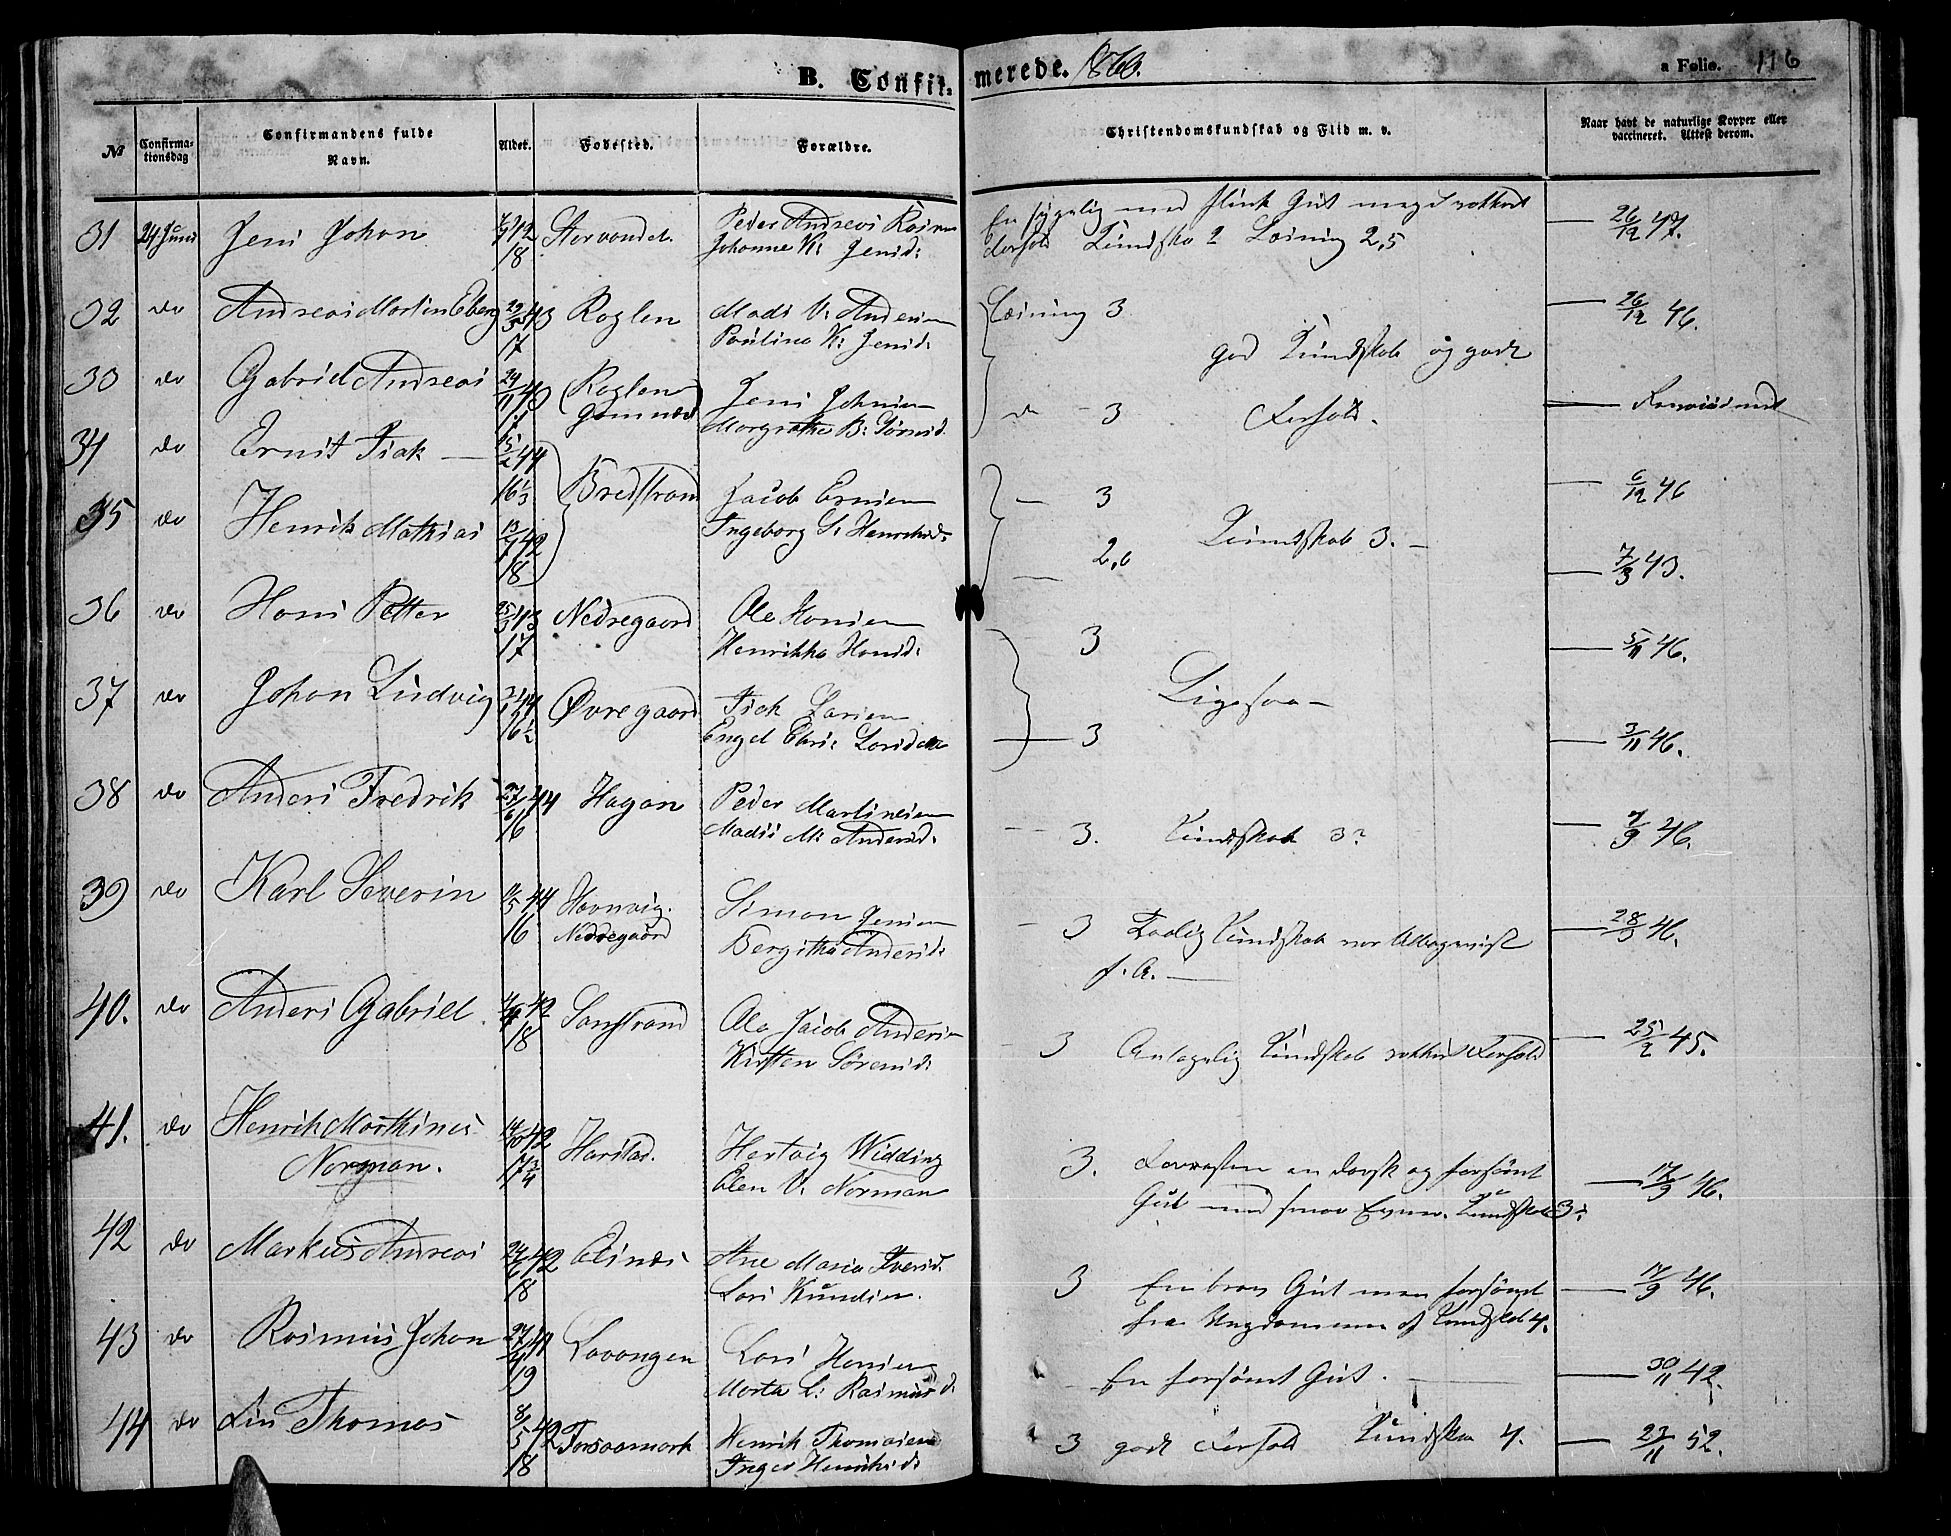 B. Confirmerede. 1860.
a Folio. 116
№
Confirmationsdag
Confirmandens fulde Navn.
Alder.
Fødested.
Forældre.
Christendomskundskab og Flid m. v.
Naar havt de naturlige Kopper eller vaccineret. Attest derom.
31 24 Juni Jens Johan 42 18 Storvandet. Peder Andreas
Johanne K: Jensd: Kundskab 2 Læsning 2,5 26/12 47.
32 do Andreas Martin Eberg 29/5 43 17 Roglen Mads V: Andersen
Paulina K: Jensd: Læsning 3 26/12 46.
god Kundskab og godt
33 do Gabriel Andreas 29/11 43 Roglen Jens Johnsen
Margrethe B: do 3 Forhold.
34 do Ernst Isak 15/2 44 16 1/3 Bredstrand Jacob Ernsen
Ingeborg S: Henriksd: 3 6/12 46
Kundskab 3.
35 do Henrik Mathias 13/7 42 18 2,6 7/3 43.
36 do Hans Petter 25/3 43 17 Nedregaard Ole Hansen
Henrikka Hansd: 3 5/11 46.
Ligesaa
37 do Johan Ludvig 44 16 1/2 Øvregaard Isak Larsen
Engel 3 3/11 46.
38 do Anders Fredrik 27/6 44 16 Hagan Peder Martinsen
Andersd: 3. Kundskab 3? 7/9 46.
39 do Karl Severin 44 16 Havnvig. Nedregaard Simon Jensen
Bergitha Andersd: 3 Kundskab 28/3 46.
f. A.
40. do Anders Gabriel 42 18 Sanstrand Ole Jacob Andersen
Kirsten Sørensd: 3 Antagelig Kundskab Forhold 25/2 45.
41. do Henrik Marthines Norman. 14/10 42 17 3/4 Harstad. Hertvig Widding
Elen V. Norman 3. Forresten en dorsk og forsømt
Gut med smaa Evner. Kundskab 3: 17/9 46.
42 do Markus Andreas 24/6 42 18 Elines Ane Maria Iversd.
Lars Knudsen. 3 En brav Gut men forsømt
fra Ungdommen af Kundskab 4. 17/9 46.
43 do Rasmus Johan 27/4 41 19 Lavangen Lars Hansen
Marta L: Rasmusd: En forsømt Gut. 30/11 42.
44 do Lin Thomas 8/5 42 18 Forsaamark Henrik Thomasen
Inger Henriksd: 3 godt Forhold Kundskab 4. 27/11 52.